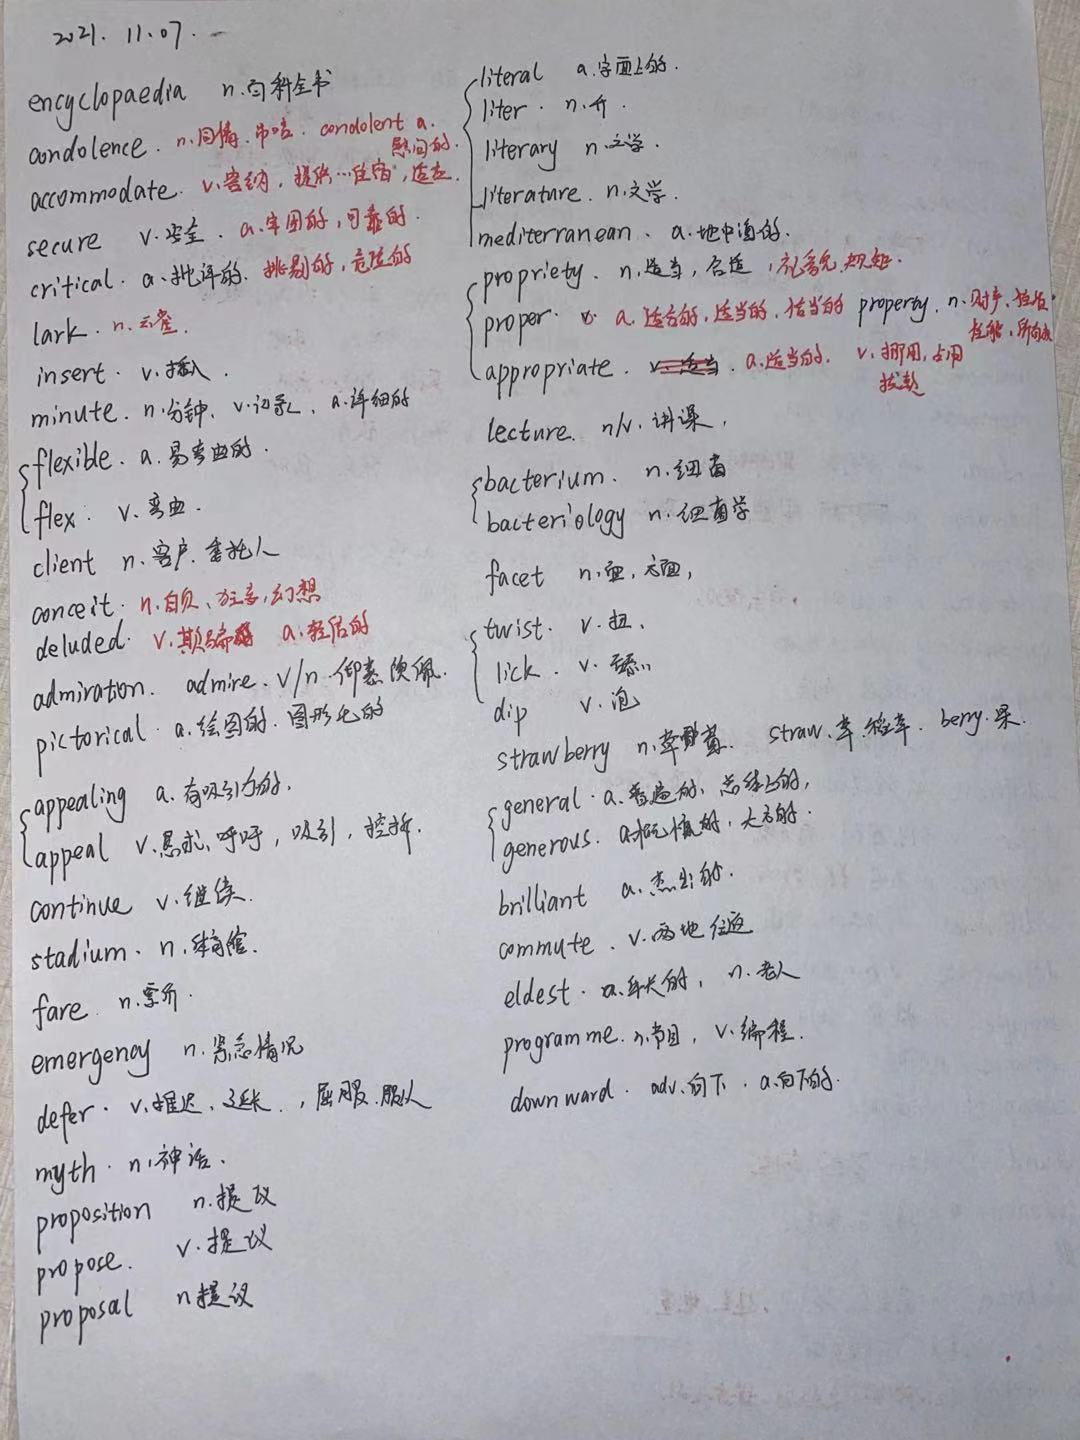 2021. 11.07.
encyclopaedia n.百科全书
condolence. n.同情.吊唁. condolent a.
慰问的.
accommodate. v.容纳, 提供…住宿, 适应.
secure v.安全. a.牢固的, 可靠的.
critical. a.批评的. 挑剔的, 危险的
lark. n.云雀.
insert. v.插入.
minute. n.分钟、v.记录、a.详细的
flexible. a.易弯曲的.
flex. v.弯曲.
client n.客户.委托人
conceit. n.自负、狂妄,幻想
deluded. v.欺骗 a.
admiration. admire. v/n.仰慕钦佩.
pictorical. a.绘图的.图形化的
appealing a.有吸引力的.
appeal v.恳求、呼吁, 吸引, 控诉.
continue v.继续.
stadium. n.体育馆.
fare. n.票价.
emergency n.紧急情况
defer. v.推迟、延长., 屈服.服从
myth. n.神话.
proposition n.提议
propose. v.提议
proposal n提议
literal a.字面上的.
liter. n.升.
literary n.文学.
literature. n.文学.
mediterranean. a.地中海的.
propriety. n.适当, 合适, 礼貌 规矩.
proper. a.适合的,适当的,恰当的 property. n.财产、性质
性能、所有权
appropriate. v.适当. a.适当的. v.挪用,占用
拨款
lecture. n/v.讲课.
bacterium. n.细菌
bacteriology n.细菌学
facet n.面,方面,
twist. v.扭.
lick. v.舔.
dip v.泡
strawberry n.草莓. straw.草.稻草. berry.果.
general. a.普遍的、总体上的,
generous. a.慷慨的,大方的.
brilliant a.杰出的.
commute. v.两地往返
eldest. a.年长的, n.老人
programme.n.节目, v.编程.
downward. adv.向下. a.向下的.